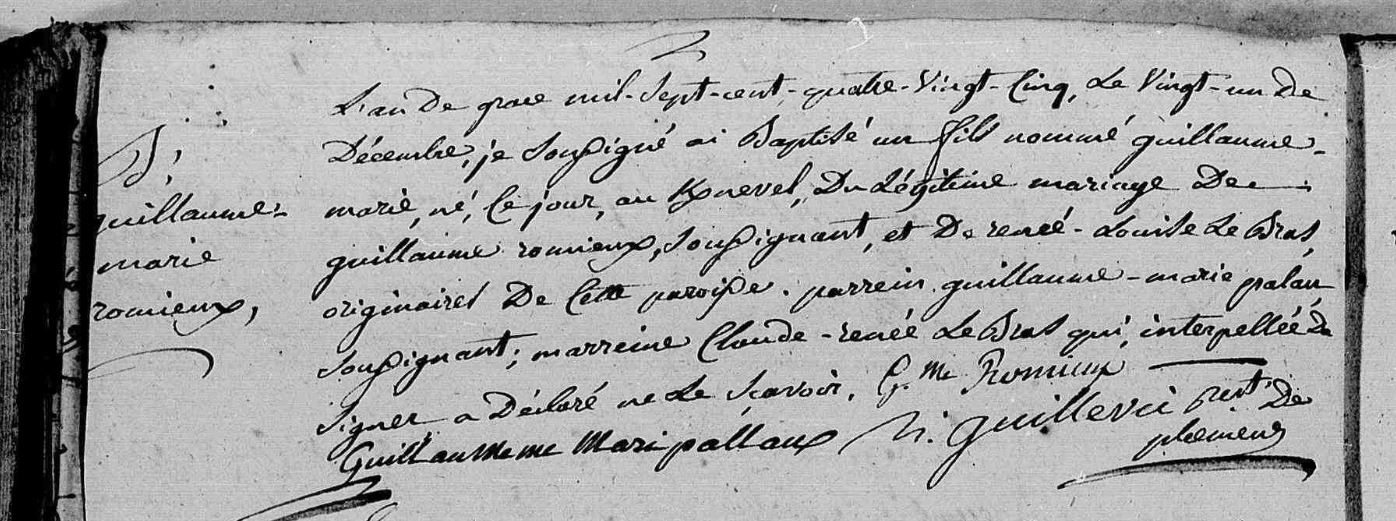 B,
guillaume-
marie
romieux,
L'an De grace mil-Sept-cent-quatre-Vingt-Cinq, Le Vingt-un De
Décembre, je Soussigné ai Baptisé un fils nommé guillaume-
marie, né, Ce jour, au Knevel, Du Légitime mariage De
guillaume romieux, Soussignant, et De renée-Louise Le Bras,
originaires De Cette paroisse. parrein guillaume-marie palau
Soussignant; marreine Claude-renée Le Bras qui, interpellée De
Signer a Déclaré ne Le Scavoir. G.me Romieux
Guillaumeme Mari pallaux N. guillevic rect De
ploemeur